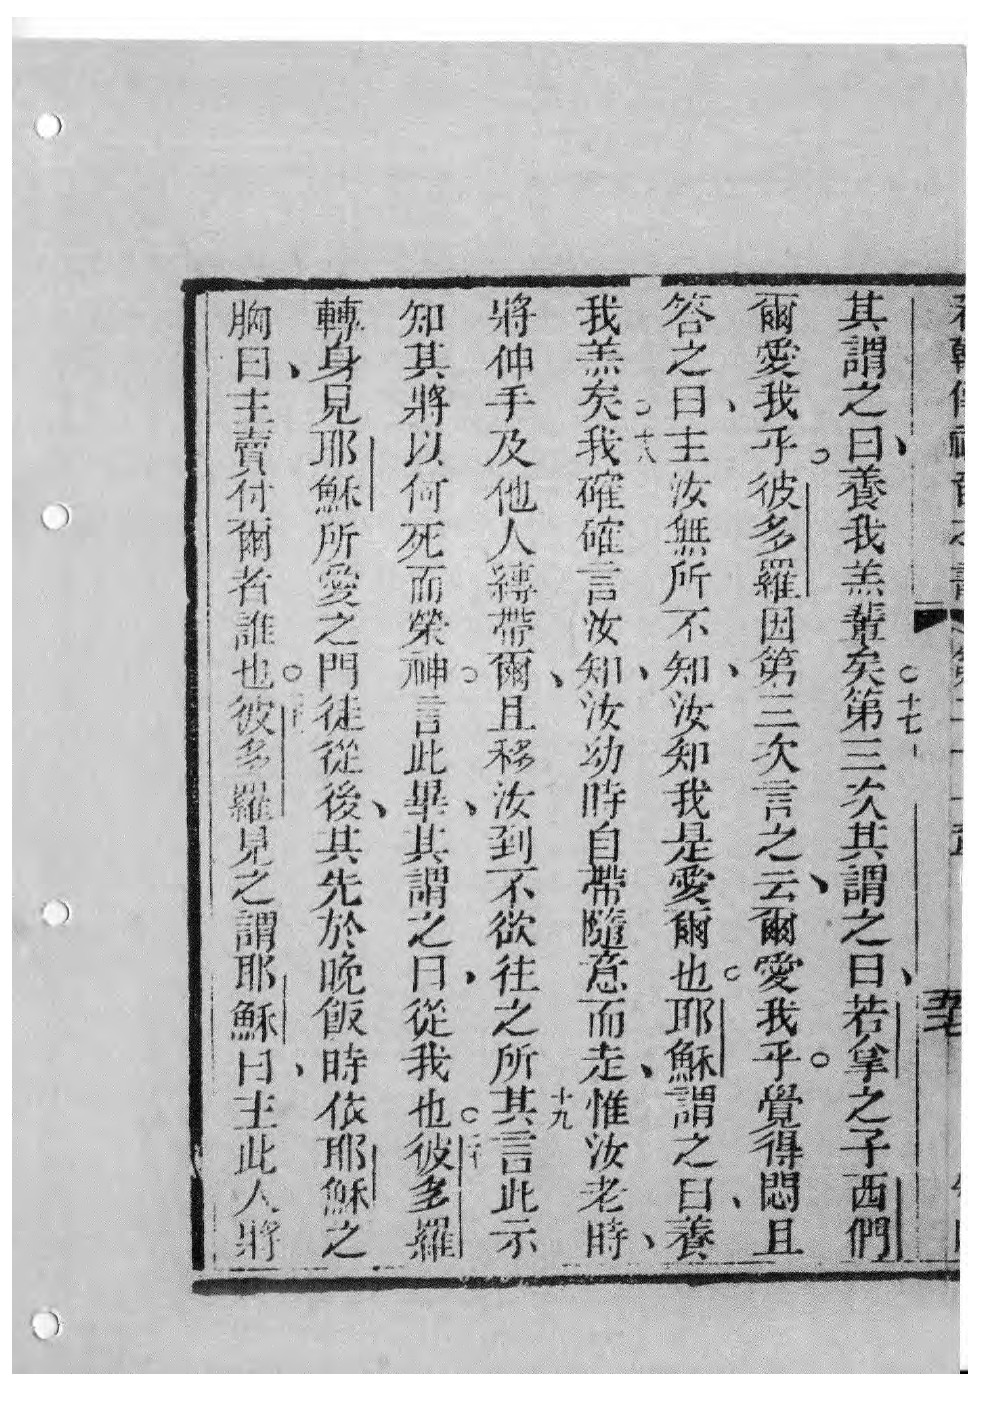 若翰傳福音之書 第二十一章
其謂之曰、養我羔輩矣。十七第三次其謂之曰、若拏之子西們
爾愛我乎。彼多羅因第三次言之云、爾愛我乎。覺得悶且
答之曰、主汝無所不知、汝知我是愛爾也。耶穌謂之曰、養
我羔矣。十八我確確言汝知、汝幼時自帶隨意而走、惟汝老時、
將伸手及他人縳帶爾、且移汝到不欲往之所十九其言此示
知其將以何死而榮神。言此畢、其謂之曰、從我也。二十彼多羅
轉身見耶穌所愛之門徒從後、其先於晚飯時依耶穌之
胸曰、主賣付爾者誰也。彼多羅見之謂耶穌曰、主此人將